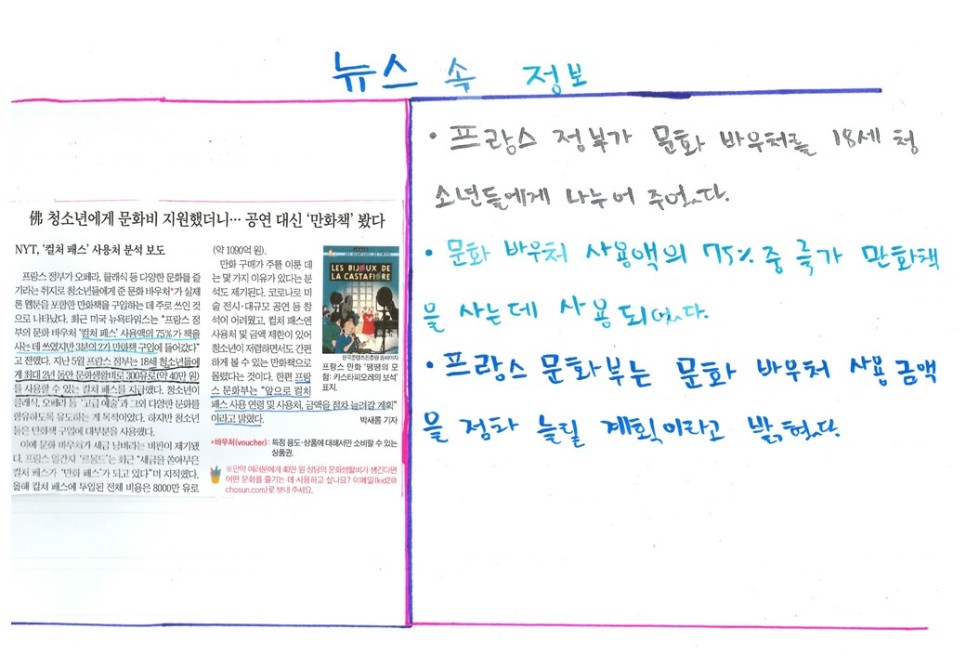 뉴스 속 정보
佛 청소년에게 문화비 지원했더니… 공연 대신 '만화책' 봤다
NYT, '컬처 패스' 사용처 분석 보도
프랑스 정부가 오페라, 클래식 등 다양한 문화를 즐
기라는 취지로 청소년들에게 준 문화 바우처*가 실제
론 웹툰을 포함한 만화책을 구입하는 데 주로 쓰인 것
으로 나타났다. 최근 미국 뉴욕타임스는 "프랑스 정
부의 문화 바우처 '컬처 패스' 사용액의 75%가 책을
사는 데 쓰였지만 3분의 2가 만화책 구입에 들어갔다"
고 전했다. 지난 5월 프랑스 정부는 18세 청소년들에
게 최대 2년 동안 문화생활비로 300유로(약 40만 원)
를 사용할 수 있는 컬처 패스를 지급했다. 청소년이
클래식, 오페라 등 '고급 예술'과 그외 다양한 문화를
향유하도록 유도하는 게 목적이었다. 하지만 청소년
들은 만화책 구입에 대부분을 사용했다.
이에 문화 바우처가 세금 낭비라는 비판이 제기됐
다. 프랑스 일간지 '르몽드'는 최근 "세금을 쏟아부은
컬처 패스가 '만화 패스'가 되고 있다"며 지적했다.
올해 컬처 패스에 투입된 전체 비용은 8000만 유로
(약 1090억 원).
만화 구매가 주를 이룬 데
는 몇 가지 이유가 있다는 분
석도 제기된다. 코로나로 미
술 전시·대규모 공연 등 참
석이 어려웠고, 컬처 패스엔
사용처 및 금액 제한이 있어
청소년이 저렴하면서도 간편
하게 볼 수 있는 만화책으로
몰렸다는 것이다. 한편 프랑
스 문화부는 "앞으로 컬처
패스 사용 연령 및 사용처, 금액을 점차 늘려갈 계획"
이라고 밝혔다.
박새롬 기자
LES BIJOUX DE
LA CASTAFIORE
한국콘텐츠진흥원 홈페이지
프랑스 만화 '땡땡의 모
험: 카스타피오레의 보석'
표지.
*바우처(voucher): 특정 용도·상품에 대해서만 소비할 수 있는
상품권.
※만약 여러분에게 40만 원 상당의 문화생활비가 생긴다면
어떤 문화를 즐기는 데 사용하고 싶나요? 이메일(kid2@
chosun.com)로 보내 주세요.
• 프랑스 정부가 문화 바우처를 18세 청
소년들에게 나누어 주었다.
• 문화 바우처 사용액의 75% 중 ⅔가 만화책
을 사는데 사용 되었다.
• 프랑스 문화부는 문화 바우처 사용 금액
을 점차 늘릴 계획이라고 밝혔다.